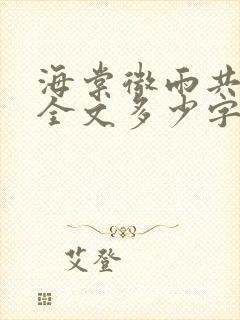 海棠微雨共
全文多少字
艾登